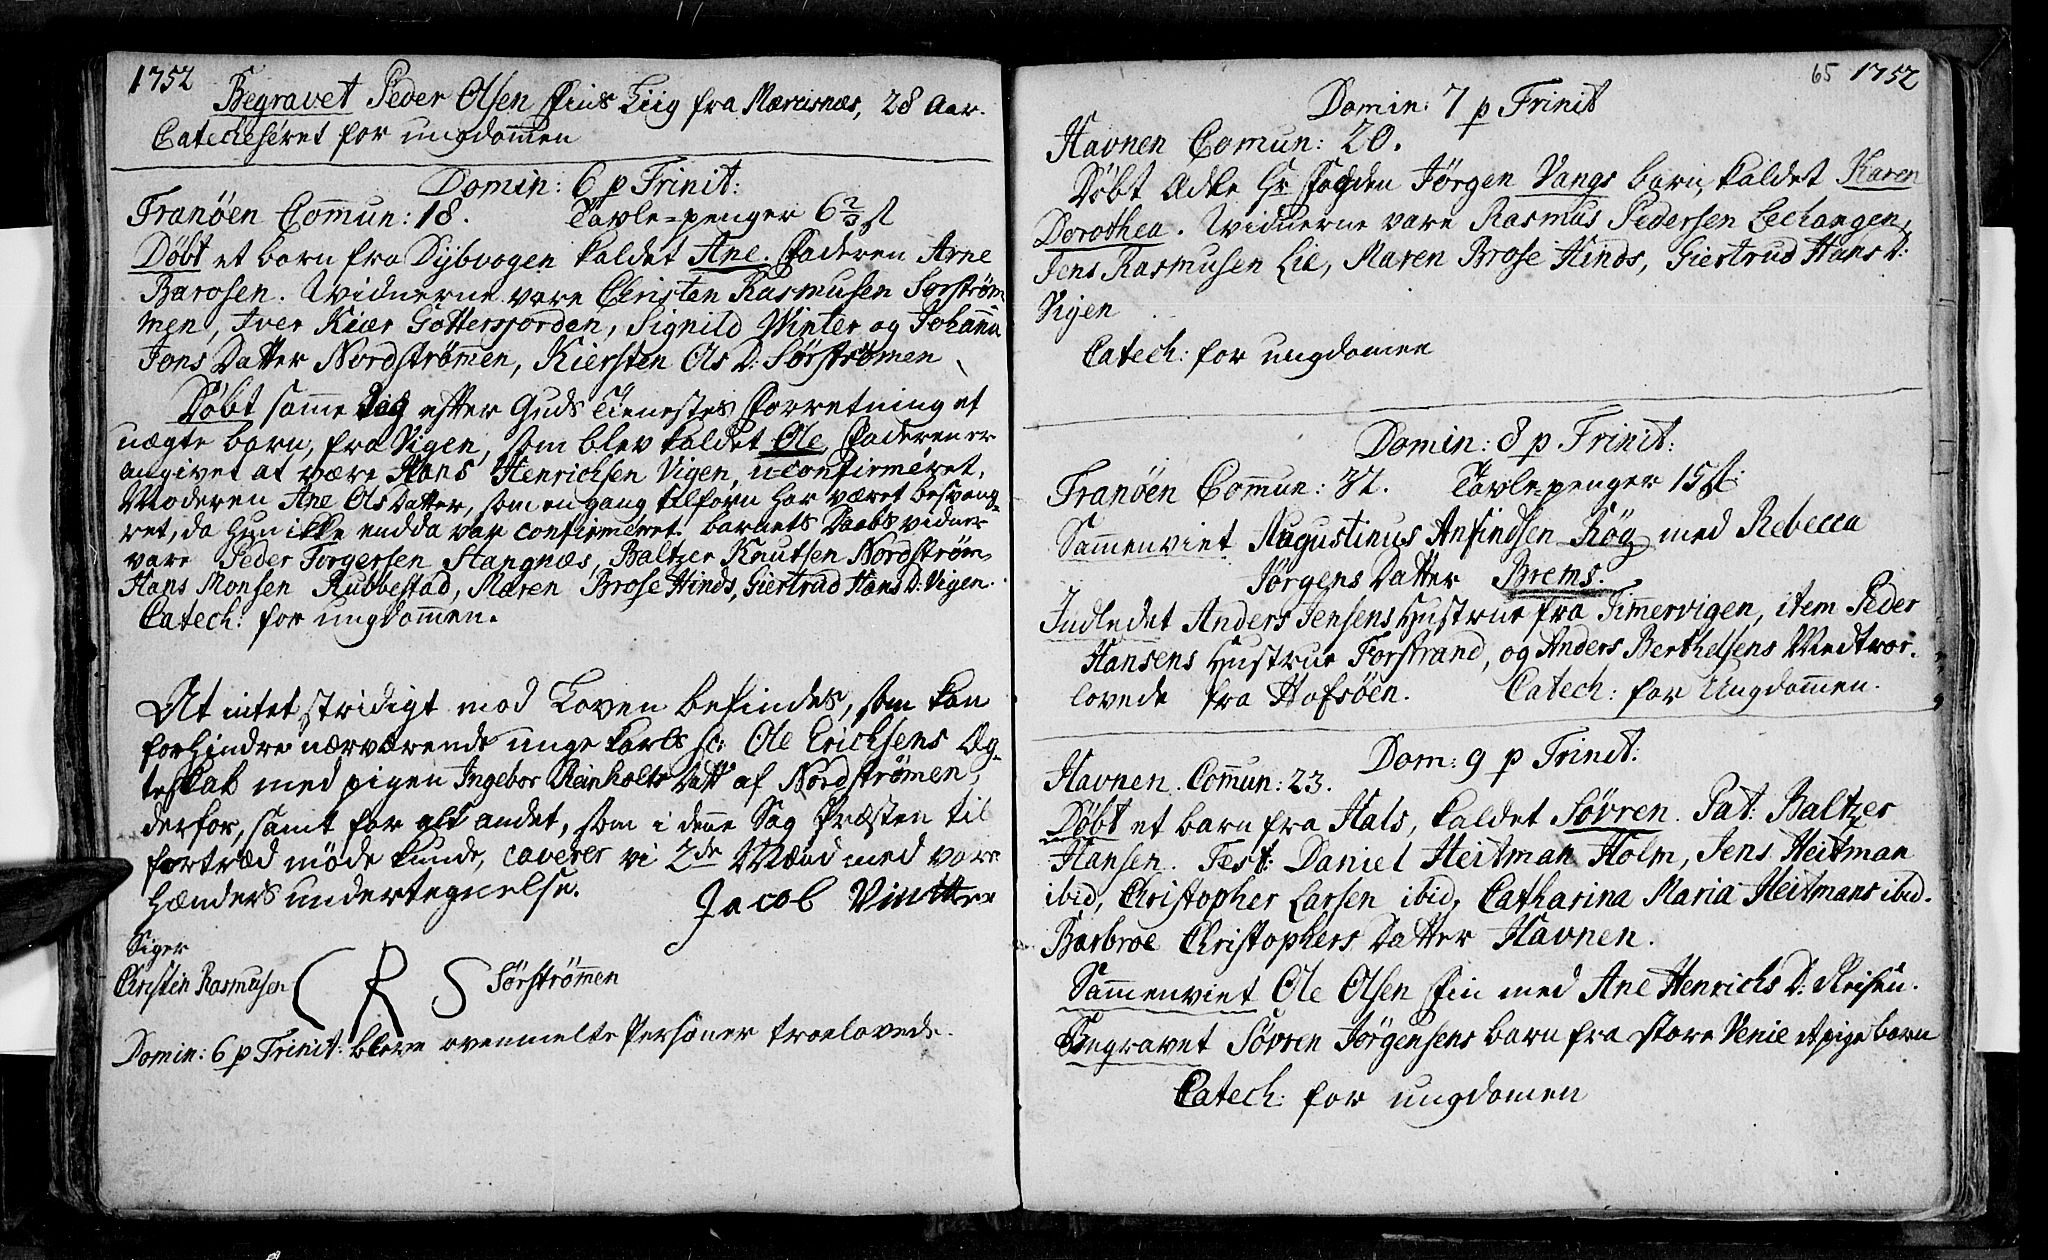 1752
Begravet Peder Olsen Fins Liig fra Mærcisnæs, 28 Aar.
Catechiseret for ungdommen
Domin: 6 p Trinit:
Tranöen Commun: 18. Tavle-penger 6 2/3 ſt
Döbt et barn fra Dybvogen kaldet Ane. Faderen Arne
Barosen. Vidnerne vare Christen Rasmusen Sorström
men, Iver Kiær Göttersfjorden, Signild Winter og Johanna
Jons Datter Nordströmen, Kiersten Ols D: Sörströmen
Döbt samme Dag efter Guds Tienestes Forretning et
uægte barn, fra Vigen, som blev kaldet Ole, Faderen er
angivet at være Hans Henrichsen Vigen, u-confirmeret.
Moderen Ane Ols Datter, som en gang tilforn har været besvang-
ret, da hun ikke endda var confirmeret. barnets Daabs vidner
vare Peder Torgersen Stangnæs, Baltzer Knutsen Nordström
Hans Monsen Rubbestad, Maren Brose Hinds, Giertrud Hans D: Vigen.
Catech: for ungdommen.
At intet stridigt mod Loven befindes, som kan
forhindre nærværende unge karls sc: Ole Erichsens Æg-
teskab med pigen Ingebor Reinholts Datt af Nordströmen,
derfor, samt for alt andet, som i denne Sag Præsten til
fortræd möde kunde, caverer vi 2de Mænd med vore
hænders undertegnelse.
Jacob Vintter
Siger
Christen Rasmusen C R S Sörströmmen
Domin: 6 p Trinit: bleve ovenmelte Personer troelovede.
65 1752
Domin: 7 p Trinit
Havnen Comun: 20.
Döbt Ædle Hr Fogden Jörgen Vangs barn, kaldet Karen
Dorothea. Vidnerne vare Rasmus Pedersen Lechangen,
Jens Rasmusen Lie, Maren Brose Hinds, Giertrud Hans D:
Vigen
Catech: for ungdomen
Domin: 8 p Trinit:
Tranöen Commun: 32. Tavle-penger 15 ſt:
Sammenviet Augustinus Anfindsen Rög med Rebecca
Jörgens Datter Brems.
Indledet Anders Jensens Hustrue fra Timmervigen, item Peder
Hansens Hustrue Forstrand, og Anders Berthelsens Medtroe-
lovede fra Hofsöen. Catech: for Ungdommen.
Dom: 9 p Trinit:
Havnen. Commun: 23.
Döbt et barn fra Hals, kaldet Sövren. Pat: Baltzer
Hansen. Test: Daniel Heitman Holm, Jens Heitman
ibid, Christopher Larsen ibid, Catharina Maria Heitmans ibid.
Barbroe Christophers Datter Havnen.
Sammenviet Ole Olsen Fin med Ane Henrichs D: Reisen.
Begravet Sövren Jörgensens barn fra store Venie et pige barn
Catech: for ungdomen